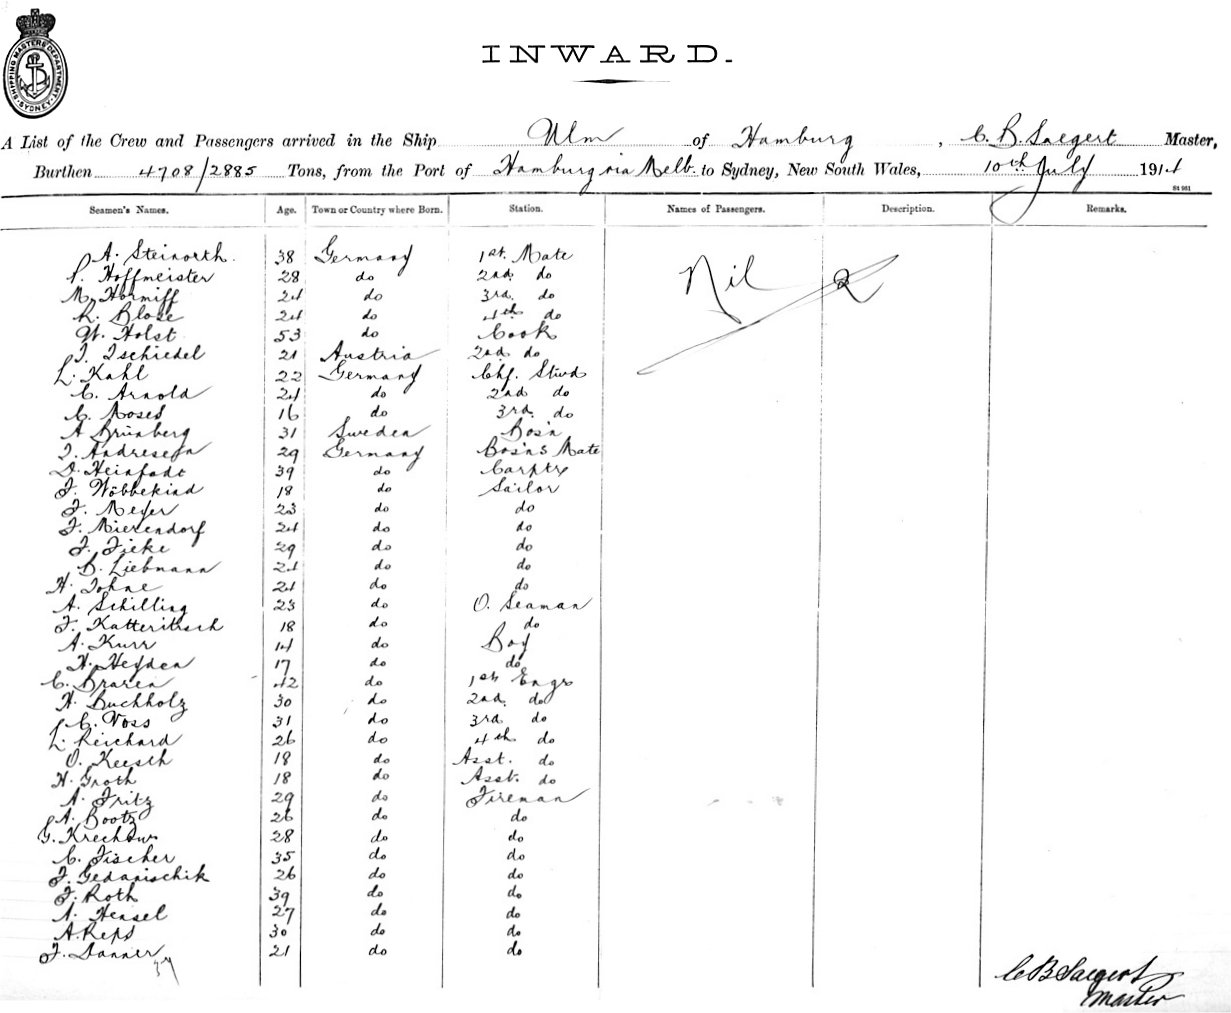 SHIPPING MASTERS DEPARTMENT SYDNEY
INWARD.
A List of the Crew and Passengers arrived in the Ship Ulm of Hamburg, C. B. Saegert Master,
Burthen 4708/2885 Tons, from the Port of Hamburg via Melb. to Sydney, New South Wales, 10th July 1914
St 981
Seamen's Names. Age. Town or Country where Born. Station. Names of Passengers. Description. Remarks.
A. Steinorth. 38 Germany 1st. Mate
Hoffmeister 28 do 2nd. do
Nil
M. Horniff 24 do 3rd. do
R. Blose 24 do 4th do
W. Holst 53 do Cook
Tschiedel 21 Austria 2nd do
L. Kahl 22 Germany Chf. Stwd
C. Arnold 24 do 2nd do
C. Moses 16 do 3rd. do
A Brünberg 31 Sweden Bos'n
Andresen 29 Germany Bos'ns Mate
D. Heinfodt 39 do Carptr
F. Wöbbekind 18 do Sailor
F. Meyer 23 do do
F. Mierendorf 24 do do
F. Fieke 29 do do
B. Liebmann 21 do do
H. Johne 21 do do
A. Schilling 23 do O. Seaman
F. Katteritzsch 18 do do
A. Kurr 14 do Boy
H. Heyden 17 do do
C. Braren 42 do 1st Engr
H. Buchholz 30 do 2nd. do
C. Voss 31 do 3rd do
L. Reichard 26 do 4th do
O. Keesch 18 do Asst. do
H. Groth 18 do Asst. do
A. Fritz 29 do Fireman
A. Bootz 26 do do
G. Krechow 28 do do
C. Fischer 35 do do
F. Gedanischik 26 do do
F. Roth 39 do do
A. Hensel 27 do do
A. Reps 30 do do
F. Danner 21 do do
37
C B Saegert
Master